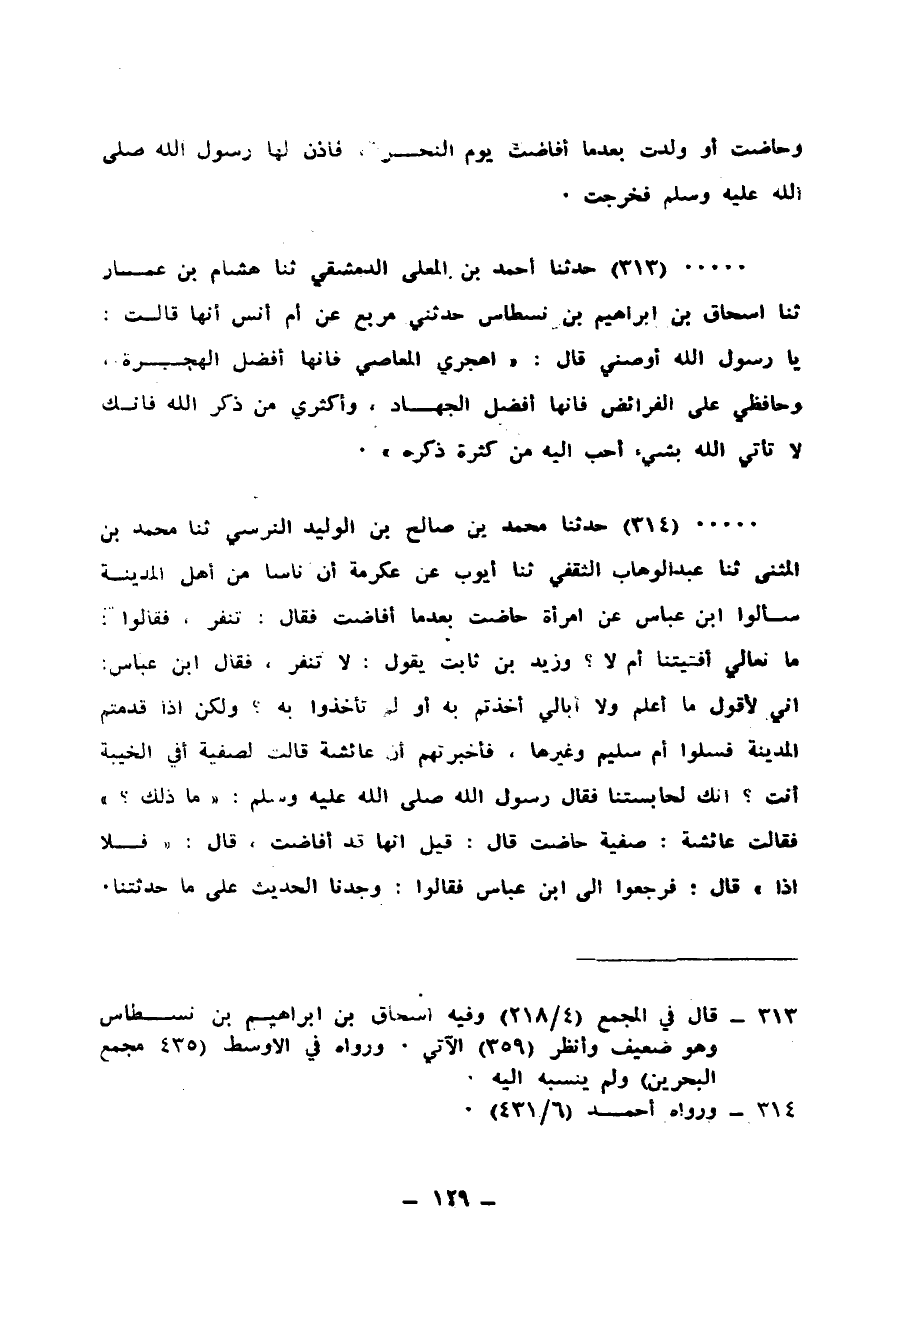 وحاضت أو ولدت بعدما أفاضت يوم النحــر ، فاذن لها رسول الله صلى
الله عليه وسلم فخرجت ٠
٠٠٠٠٠ (٣١٣) حدثنا أحمد بن المعلى الدمشقي ثنا هشام بن عمــار
ثنا اسحاق بن ابراهيم بن نسطاس حدثني مربع عن أم أنس أنها قالـت :
يا رسول الله أوصني قال : « اهجري المعاصي فانها أفضل الهجــرة ،
وحافظي على الفرائض فانها أفضل الجهــاد ، وأكثري من ذكر الله فانـك
لا تأتي الله بشيء أحب اليه من كثرة ذكره » ٠
٠٠٠٠٠ (٣١٤) حدثنا محمد بن صالح بن الوليد النرسي ثنا محمد بن
المثنى ثنا عبدالوهاب الثقفي ثنا أيوب عن عكرمة أن ناسا من أهل المدينـة
ســألوا ابن عباس عن امرأة حاضت بعدما أفاضت فقال : تنفر ، فقالوا :
ما نعالي أفتيتنا أم لا ؟ وزيد بن ثابت يقول : لا تنفر ، فقال ابن عباس:
اني لأقول ما أعلم ولا أبالي أخذتم به أو لم تأخذوا به ؟ ولكن اذا قدمتم
المدينة فسلوا أم سليم وغيرها ، فأخبرتهم أن عائشة قالت لصفية أفي الخيبة
أنت ؟ انك لحابستنا فقال رسول الله صلى الله عليه وسلم : « ما ذلك ؟ »
فقالت عائشة : صفية حاضت قال : قيل انها قد أفاضت ، قال : « فــلا
اذا » قال : فرجعوا الى ابن عباس فقالوا : وجدنا الحديث على ما حدثتنا٠
٣١٣ ـ قال في المجمع (٢١٨/٤) وفيه اسحاق بن ابراهيـم بن نســطاس
وهو ضعيف وأنظر (٣٥٩) الآتي ٠ ورواه في الاوسط (٤٣٥ مجمع
البحرين) ولم ينسبه اليه ٠
٣١٤ ـ ورواه أحمــد (٤٣١/٦) ٠
ـ ١٢٩ ـ